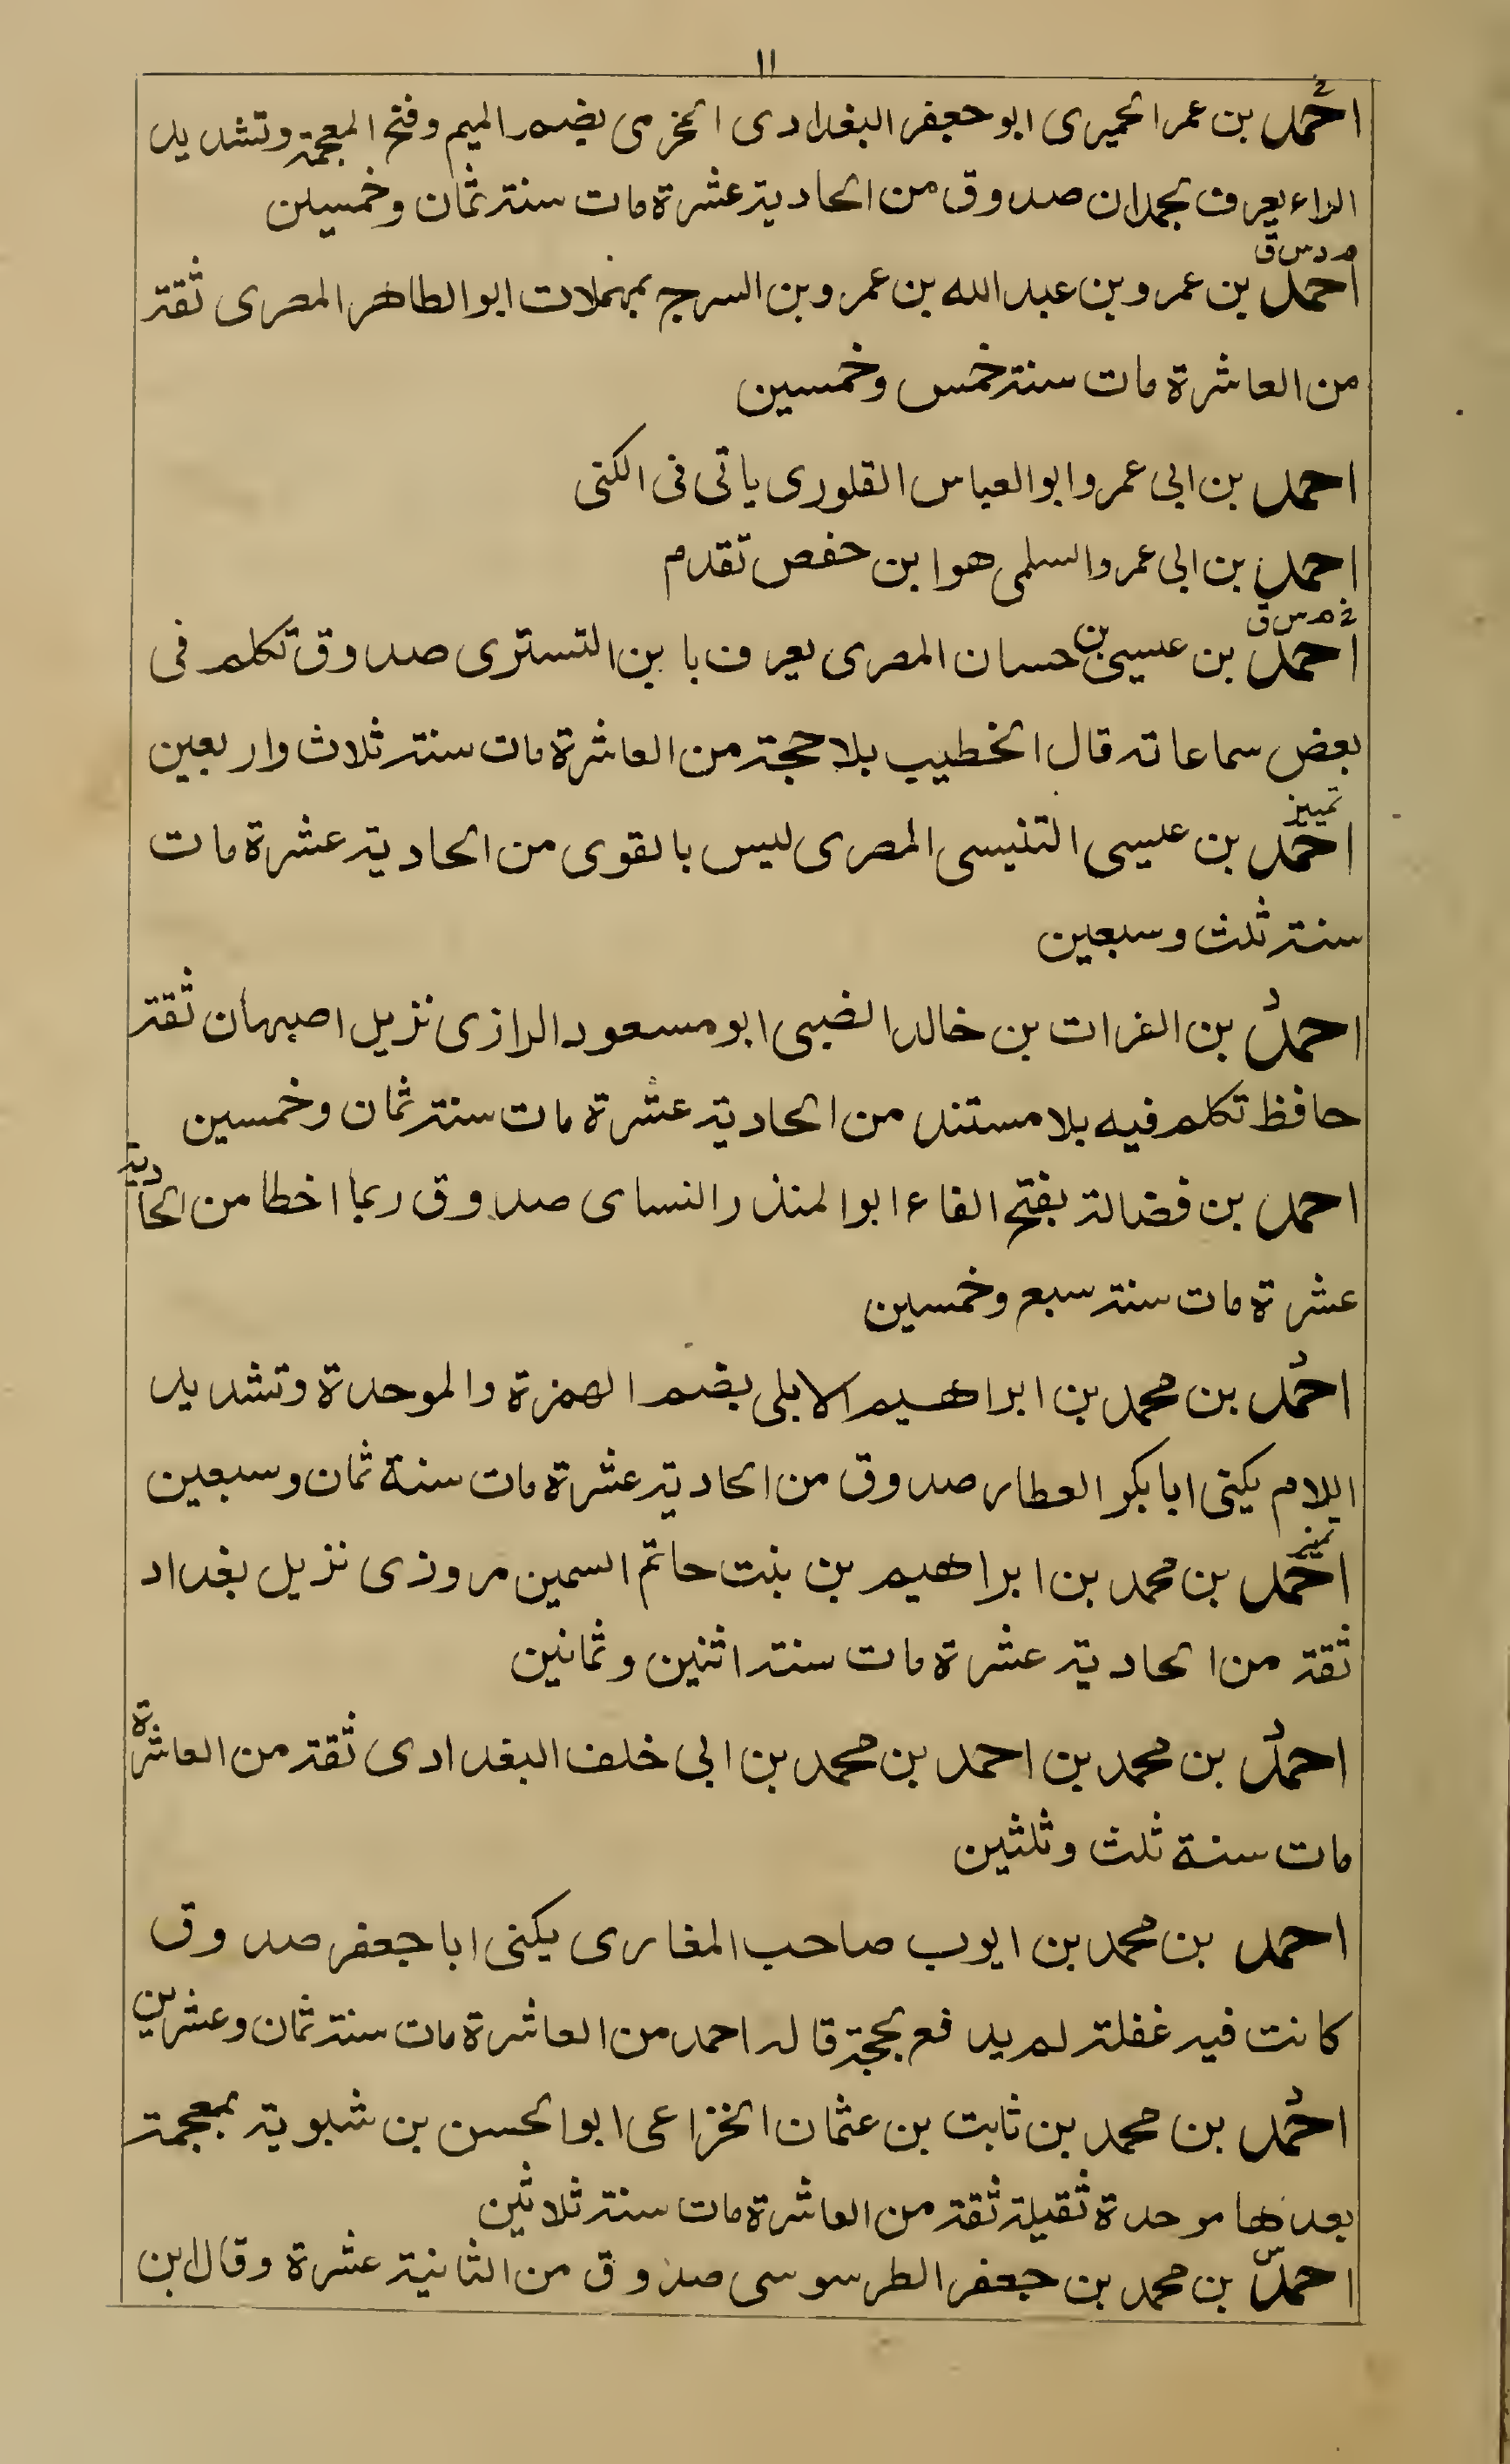 ١١
خ
احمد بن عمر الحميرى ابو جعفر البغدادى المخرمى بضم الميم وفتح المعجمة وتشديد
الراء يعرف بحمدان صدوق من الحادية عشرة مات سنة ثمان وخمسين
م د س ق
احمد بن عمرو بن عبد الله بن عمرو بن السرح بمهملات ابو الطاهر المصرى ثقة
من العاشرة مات سنة خمس وخمسين
احمد بن ابى عمرو ابو العباس القلورى ياتى فى الكنى
احمد بن ابى عمرو السلمى هو ابن حفص تقدم
خ م س ق
احمد بن عيسى بن حسان المصرى يعرف بابن التسترى صدوق تكلم فى
بعض سماعاته قال الخطيب بلا حجة من العاشرة مات سنة ثلاث واربعين
تمييز
احمد بن عيسى التنيسى المصرى ليس بالقوى من الحادية عشرة مات
سنة ثلث وسبعين
د
احمد بن الفرات بن خالد الضبى ابو مسعود الرازى نزيل اصبهان ثقة
حافظ تكلم فيه بلا مستند من الحادية عشرة مات سنة ثمان وخمسين
احمد بن فضالة بفتح الفاء ابو المنذر النساى صدوق ربما اخطا من الحادية
عشرة مات سنة سبع وخمسين
د
احمد بن محمد بن ابراهيم الابلى بضم الهمزة والموحدة وتشديد
اللام يكنى ابا بكر العطار صدوق من الحادية عشرة مات سنة ثمان وسبعين
تمييز
احمد بن محمد بن ابراهيم بن بنت حاتم السمين مروزى نزيل بغداد
ثقة من الحادية عشرة مات سنة اثنين وثمانين
د
احمد بن محمد بن احمد بن محمد بن ابى خلف البغدادى ثقة من العاشرة
مات سنة ثلث وثلثين
احمد بن محمد بن ايوب صاحب المغازى يكنى ابا جعفر صدوق
كانت فيه غفلة لم يدفع بحجة قاله احمد من العاشرة مات سنة ثمان وعشرين
د
احمد بن محمد بن ثابت بن عثمان الخزاعى ابو الحسن بن شبوية بمعجمة
بعدها موحدة ثقيلة ثقة من العاشرة مات سنة ثلاثين
س
احمد بن محمد بن جعفر الطرسوسى صدوق من الثانية عشرة وقال ابن